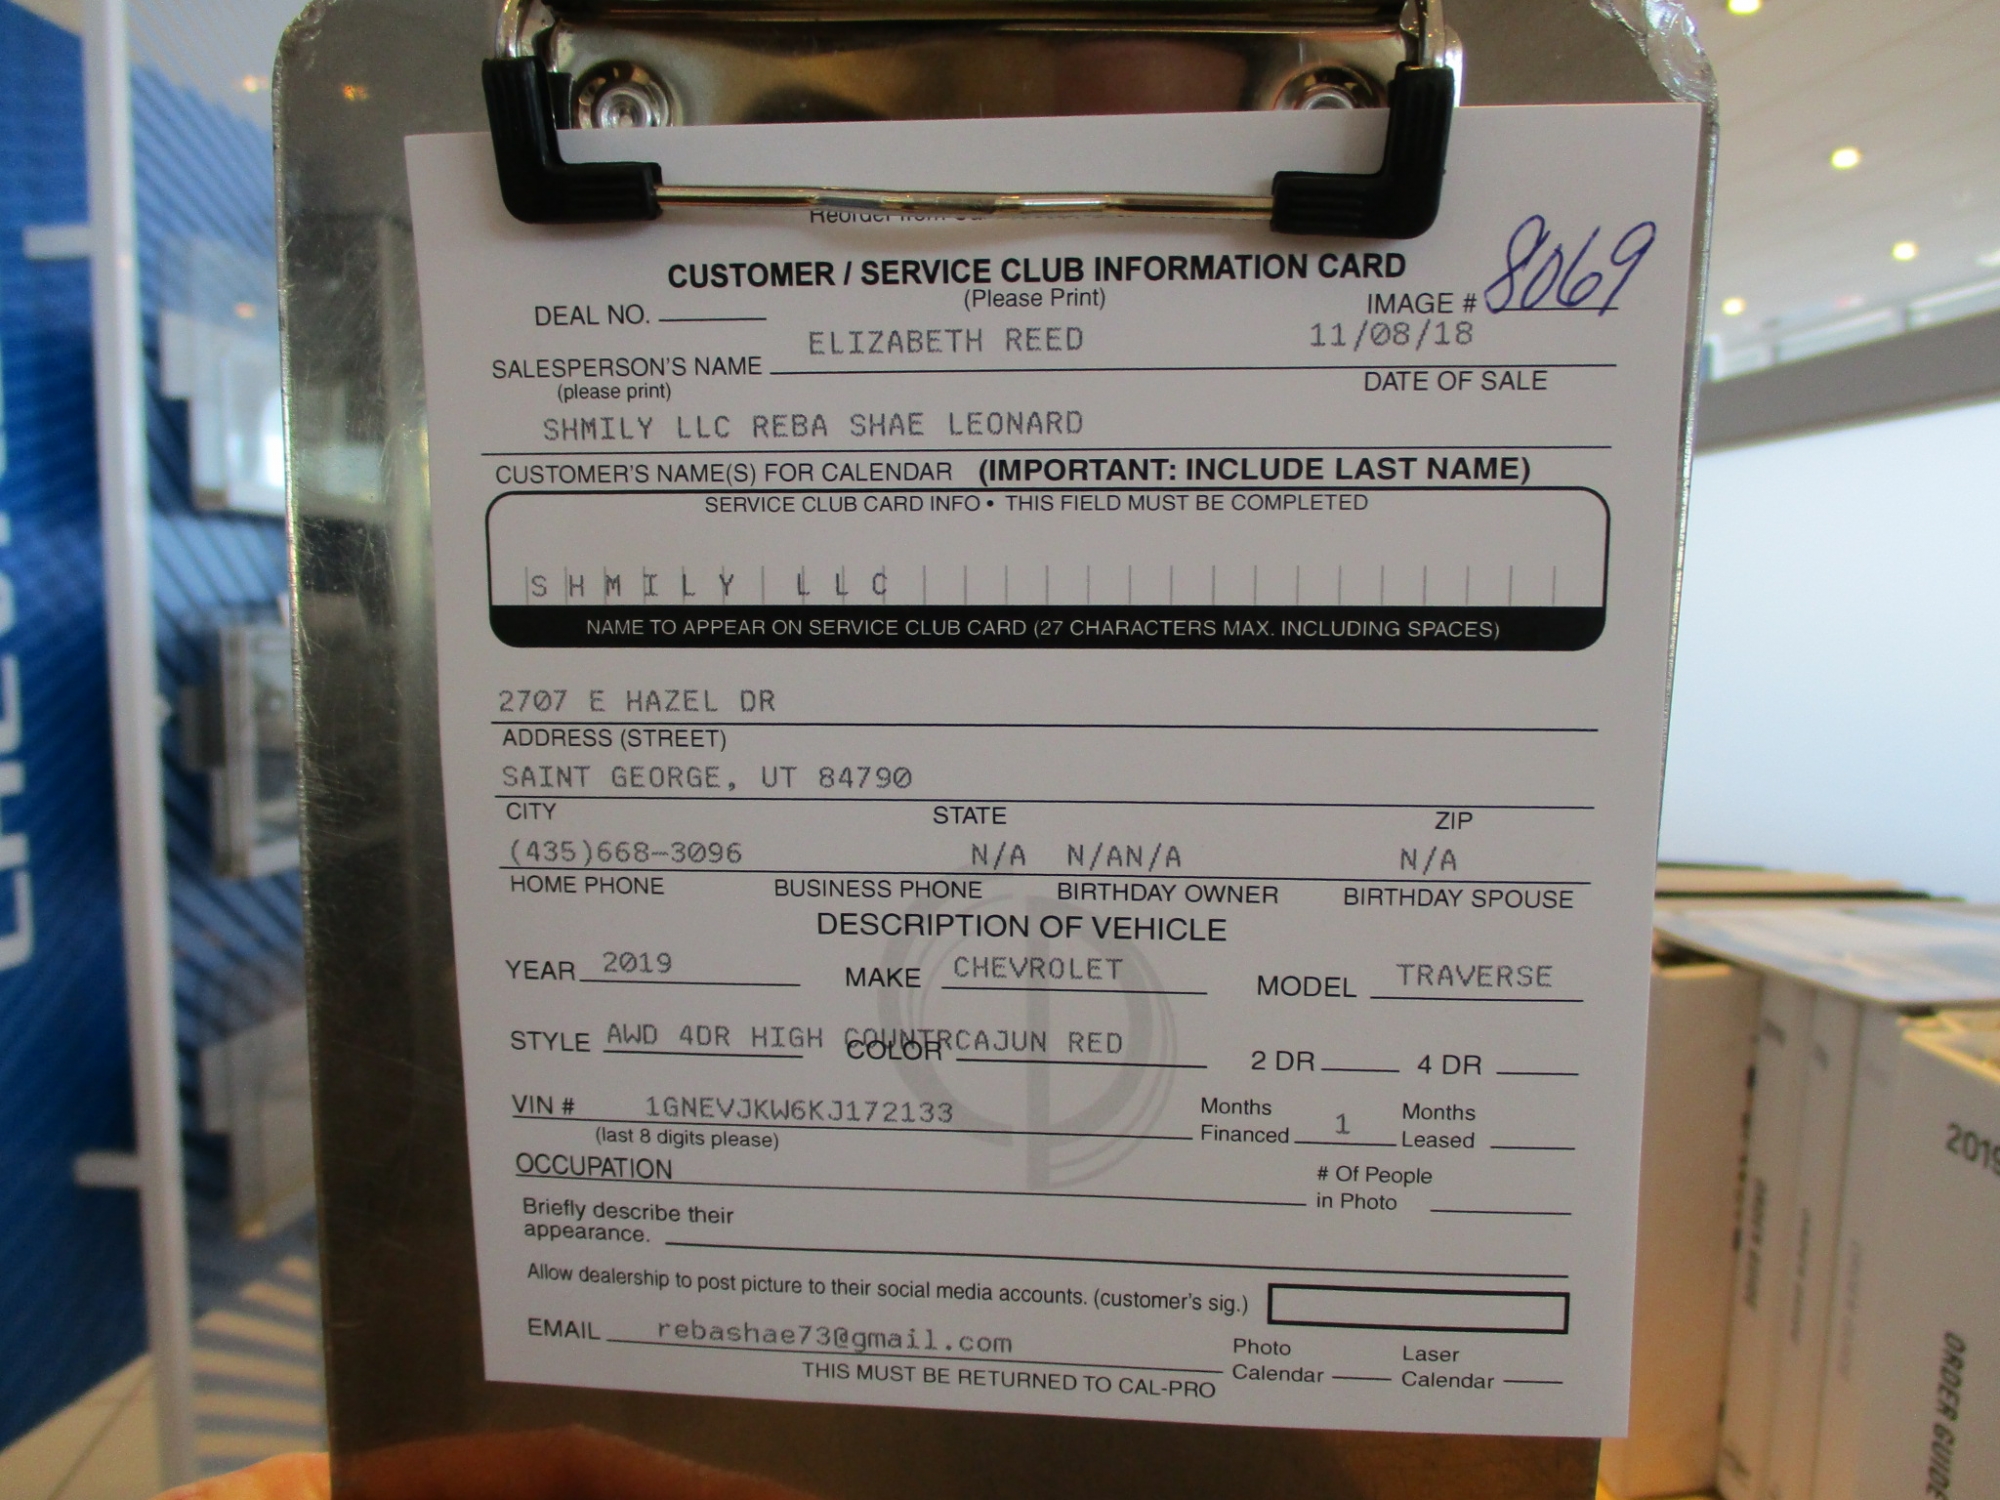 Reorder from
CUSTOMER / SERVICE CLUB INFORMATION CARD
(Please Print)
DEAL NO. IMAGE # 8069
ELIZABETH REED 11/08/18
SALESPERSON'S NAME DATE OF SALE
(please print)
SHMILY LLC REBA SHAE LEONARD
CUSTOMER'S NAME(S) FOR CALENDAR (IMPORTANT: INCLUDE LAST NAME)
SERVICE CLUB CARD INFO • THIS FIELD MUST BE COMPLETED
SHMILY LLC
NAME TO APPEAR ON SERVICE CLUB CARD (27 CHARACTERS MAX. INCLUDING SPACES)
2707 E HAZEL DR
ADDRESS (STREET)
SAINT GEORGE, UT 84790
CITY STATE ZIP
(435)668-3096 N/A N/AN/A N/A
HOME PHONE BUSINESS PHONE BIRTHDAY OWNER BIRTHDAY SPOUSE
DESCRIPTION OF VEHICLE
YEAR 2019 MAKE CHEVROLET MODEL TRAVERSE
STYLE AWD 4DR HIGH COUNTR COLOR CAJUN RED 2 DR 4 DR
VIN # 1GNEVJKW6KJ172133 Months Financed 1 Months Leased
(last 8 digits please)
OCCUPATION # Of People in Photo
Briefly describe their
appearance.
Allow dealership to post picture to their social media accounts. (customer's sig.)
EMAIL rebashae73@gmail.com Photo Calendar Laser Calendar
THIS MUST BE RETURNED TO CAL-PRO
2019
ORDER GUIDE